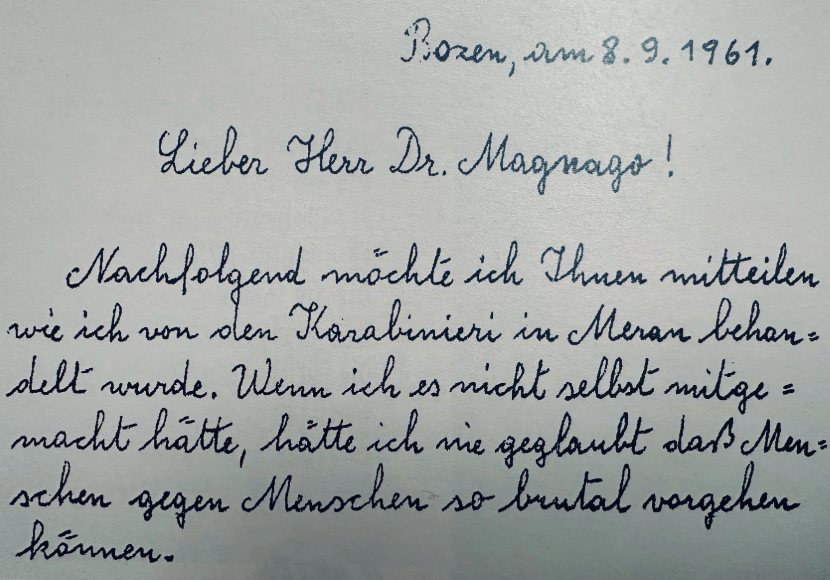 Bozen, am 8.9.1961.
Lieber Herr Dr. Magnago!
Nachfolgend möchte ich Ihnen mitteilen
wie ich von den Karabinieri in Meran behan=
delt wurde. Wenn ich es nicht selbst mitge=
macht hätte, hätte ich nie geglaubt daß Men=
schen gegen Menschen so brutal vorgehen
können.